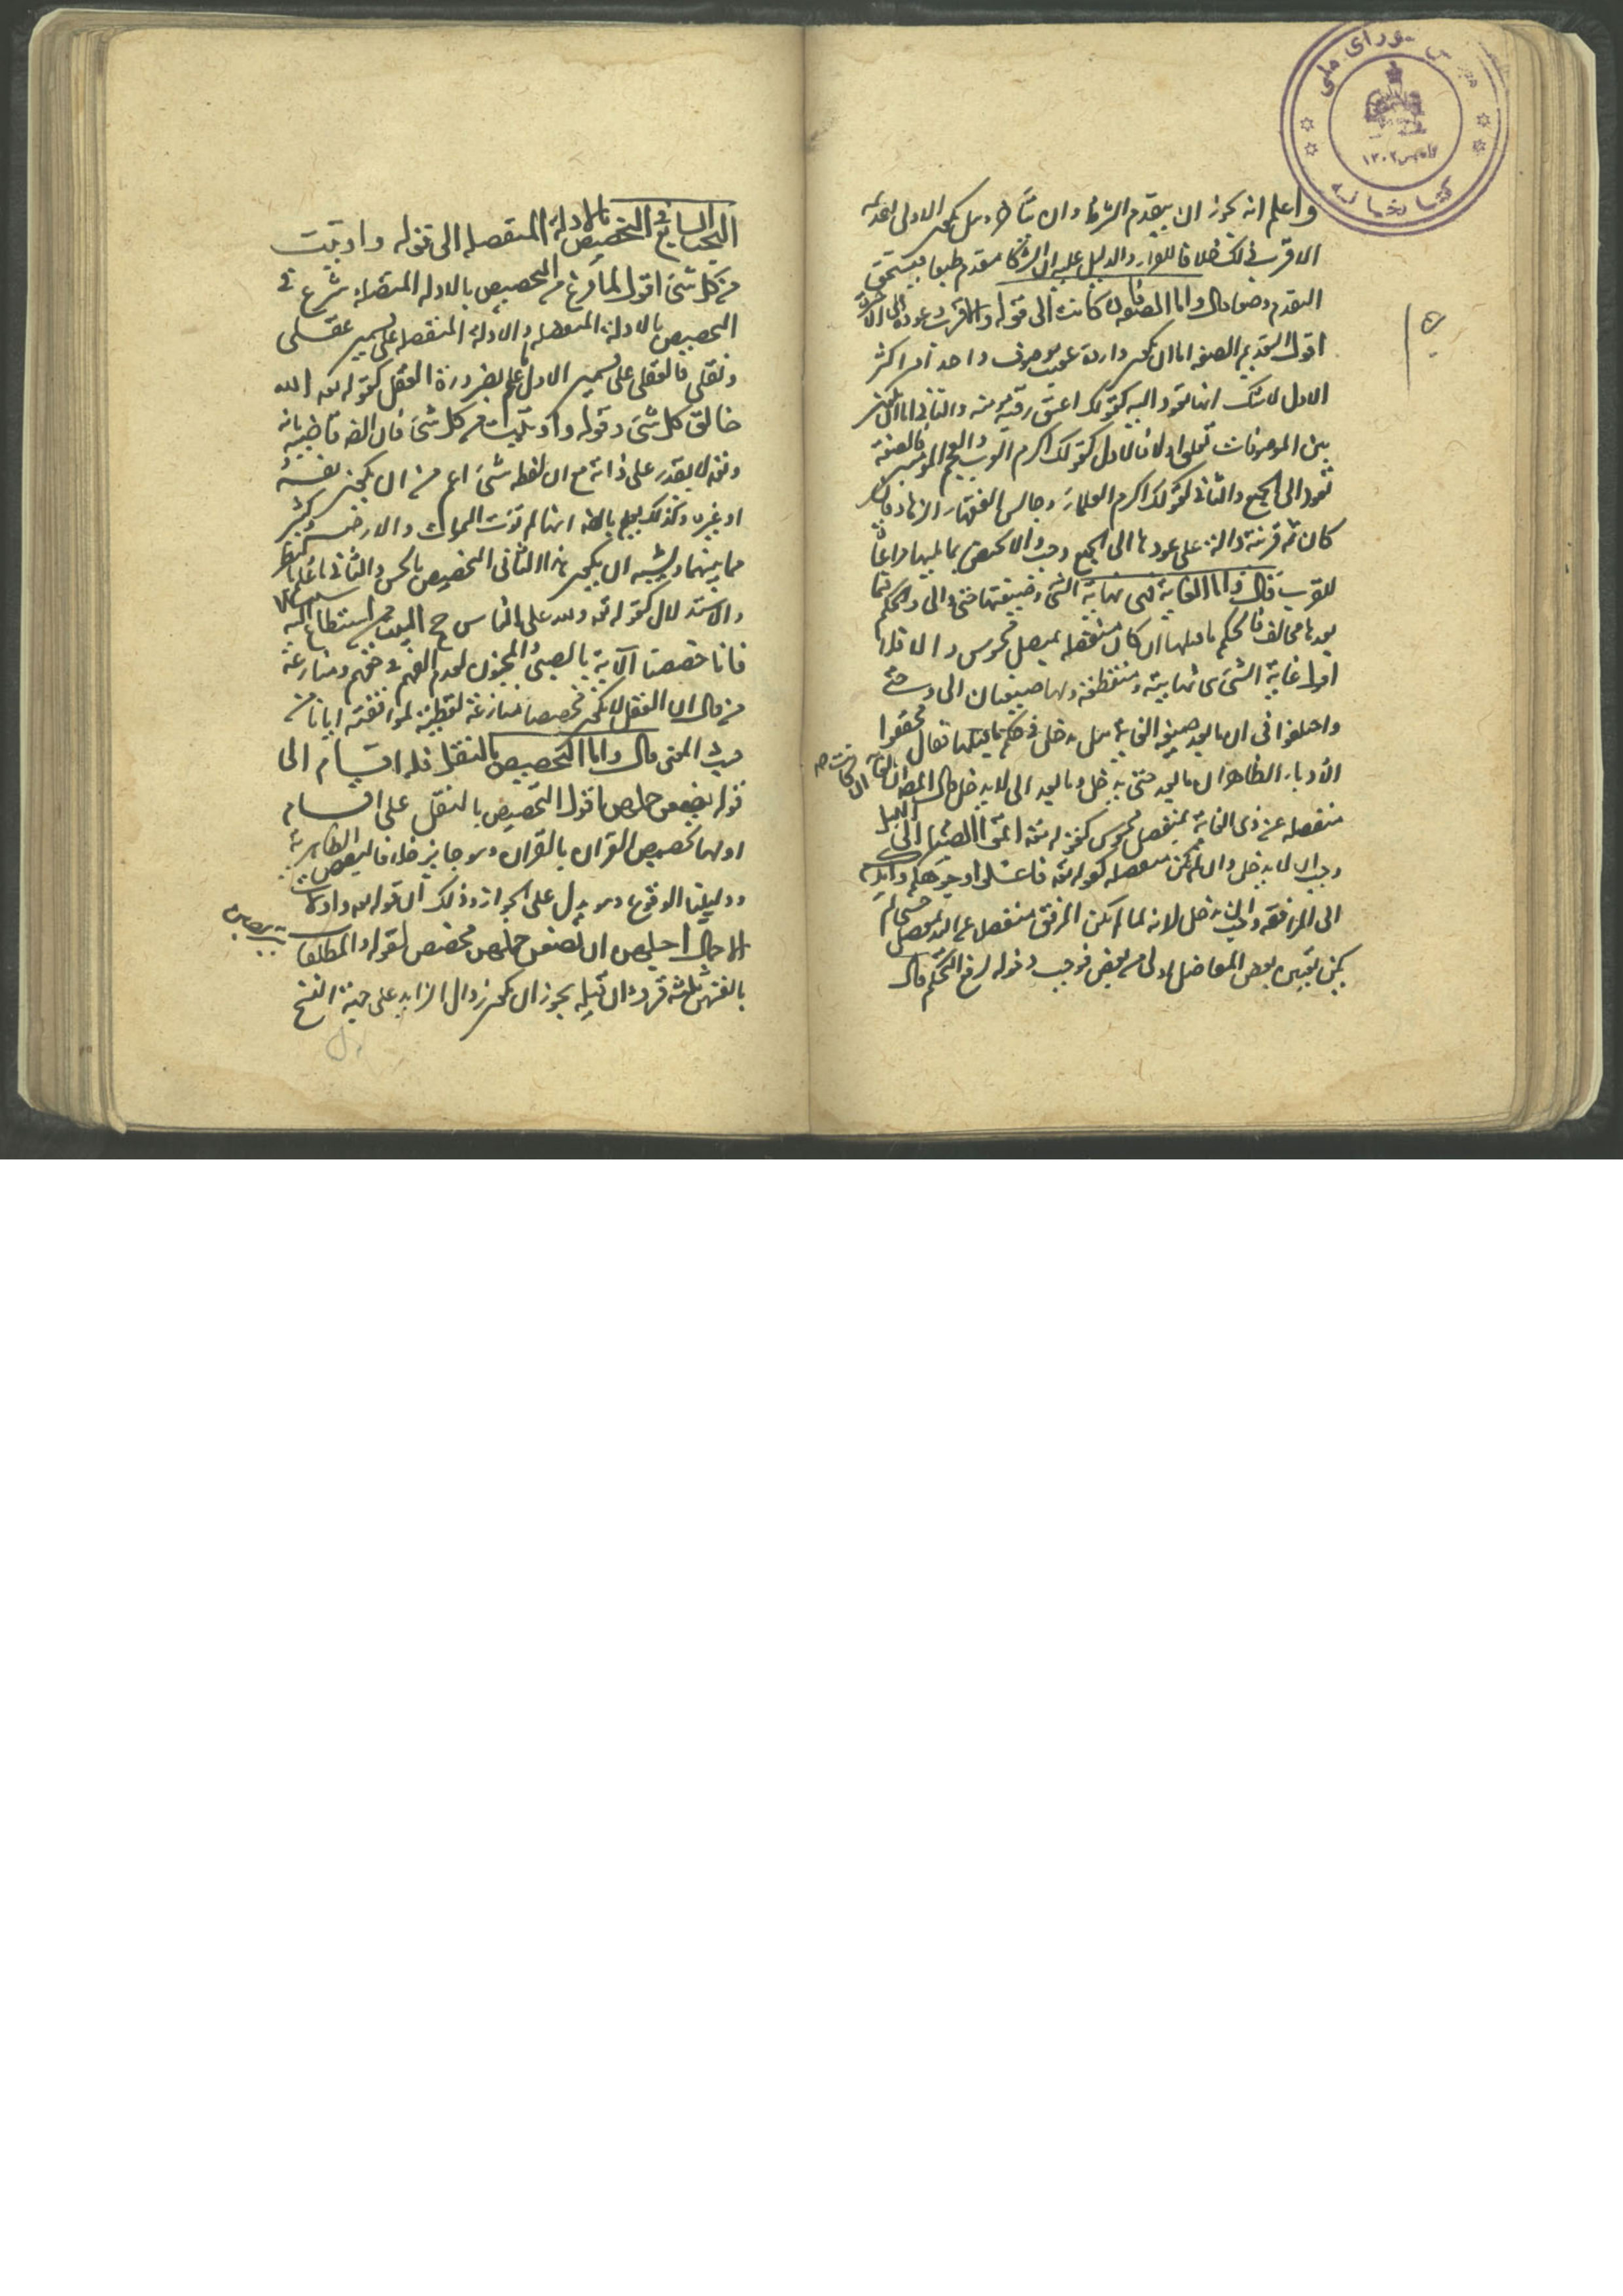 واعلم انه يجوز ان يتقدم الشرط وان يتأخر وهل يكون الاولى تقديمه
الاقرب ذلك خلافا للفراء والدليل عليه ان الشرط متقدم طبعا فيستحق
التقدم وضعا قال واما الصفة فان كانت الى قوله والاقرب عودها الى الاخيرة
اقول التقييد بالصفة اما ان يكون واردة عقيب موصوف واحد او اكثر
الاول لا شك انها تعود اليه كقولك اعتق رقبة مؤمنة والثاني اما ان يكون
بين الموصوفات تعلق او لا فالاول كقولك اكرم العرب والعجم المؤمنين فالصفة
تعود الى الجميع والثاني كقولك اكرم العلماء وجالس الفقهاء الزهاد فان
كان ثمة قرينة دالة على عودها الى الجميع وجب والا يختص بما يليها مراعاة
للقرب قال واما الغاية فهي نهاية الشيء وصيغتها حتى والى والحكم فيما
بعدها مخالف للحكم ما قبلها ان كان منفصلة بمفصل محسوس والا فلا
اقول غاية الشيء نهايته ومنقطعه ولها صيغتان الى وحتى
واختلفوا في ان ما بعد صيغة الغاية هل يدخل في حكم ما قبلها فقال محققوا
الادباء الظاهر ان ما بعد حتى يدخل وما بعد الى لا يدخل قال المصنف ان الغاية ان كانت
منفصلة عن ذي الغاية بمنفصل محسوس كقوله تعه اتموا الصيام الى الليل
وجب ان لا يدخل وان لم يكن منفصلة كقوله تعه فاغسلوا وجوهكم وايديكم
الى المرافق وجب ان يدخل لانه لما لم يكن المرفق منفصلا عن اليد بمفصل حسي لم
يكن تعيين بعض المفاصل اولى من بعض فوجب دخوله لرفع التحكم قال
البحث السابع في التخصيص بالادلة المنفصلة الى قوله واوتيت
من كل شيء اقول لما فرغ من التخصيص بالادلة المتصلة شرع في
التخصيص بالادلة المنفصلة والادلة المنفصلة على قسمين عقلي
ونقلي فالعقلي على قسمين الاول ما علم بضرورة العقل كقوله تعه الله
خالق كل شيء وقوله واوتيت من كل شيء فان الضرورة قاضية بانه
تعه لا يقدر على ذاته مع ان لفظة شيء اعم من ان يكون نفسه
او غيره وكذلك يعلم بالضرورة انها لم تؤت السموات والارض وكثير
مما بينهما ويشبه ان يكون هذا الثاني التخصيص بالحس والثاني ما علم بالنظر
والاستدلال كقوله تعه ولله على الناس حج البيت من استطاع اليه سبيلا
فانا خصصنا الآية بالصبي والمجنون لعدم الفهم في حقهم ومنازعة
من قال ان العقل لا يكون مخصصا منازعة لفظية لموافقته ايانا من
حيث المعنى قال واما التخصيص بالنقل فله اقسام الى
قوله بوضع حملهن اقول التخصيص بالنقل على اقسام
اولها تخصيص القرآن بالقرآن وهو جايز خلافا لبعض الظاهرية
ودليلنا الوقوع وهو يدل على الجواز وذلك ان قوله تعه واولات
الاحمال اجلهن ان يضعن حملهن مخصص لقوله والمطلقات يتربصن
بانفسهن ثلاثة قروء ان قيل يجوز ان يكون زوال الزايد على جهة النسخ